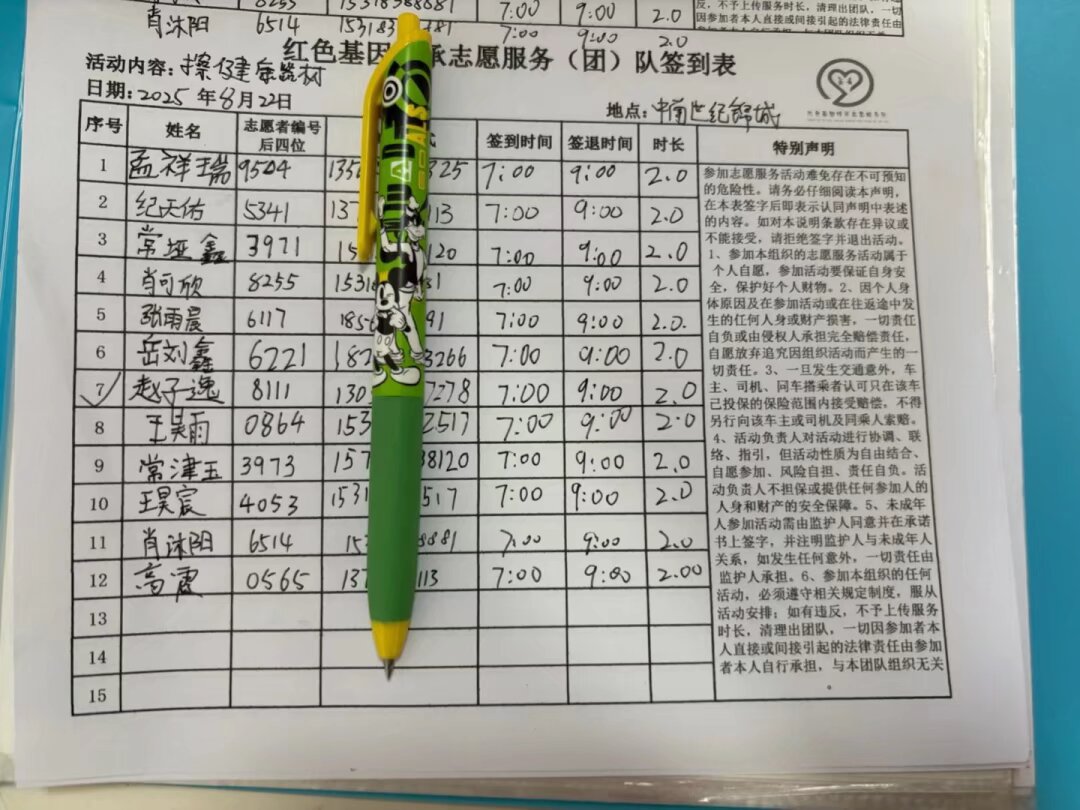 8255 15318388681 7:00 9:00 2.0
肖沐阳 6514 15318 881 7:00 9:00 2.0
反，不予上传服务时长，清理出团队，一切
因参加者本人直接或间接引起的法律责任由
红色基因 承志愿服务（团）队签到表
活动内容：擦健身器材
日期：2025年8月22日
地点：中南世纪锦城
序号 姓名 志愿者编号后四位 签到时间 签退时间 时长 特别声明
1 孟祥瑞 9504 135 325 7:00 9:00 2.0
2 纪天佑 5341 137 113 7:00 9:00 2.0
3 常垭鑫 3971 15 120 7:00 9:00 2.0
4 肖可欣 8255 1531 81 7:00 9:00 2.0
5 张雨晨 6117 185 91 7:00 9:00 2.0.
6 岳刘鑫 6221 187 3266 7:00 9:00 2.0
7 赵子逸 8111 130 7278 7:00 9:00 2.0
8 王昊雨 0864 153 2517 7:00 9:00 2.0
9 常津玉 3973 157 38120 7:00 9:00 2.0
10 王昊宸 4053 1531 517 7:00 9:00 2.0
11 肖沐阳 6514 153 8881 7:00 9:00 2.0
12 高震 0565 137 113 7:00 9:00 2.00
13
14
15
参加志愿服务活动难免存在不可预知
的危险性。请务必仔细阅读本声明，
在本表签字后即表示认同声明中表述
的内容。如对本说明条款存在异议或
不能接受，请拒绝签字并退出活动。
1、参加本组织的志愿服务活动属于
个人自愿，参加活动要保证自身安
全，保护好个人财物。2、因个人身
体原因及在参加活动或在往返途中发
生的任何人身或财产损害，一切责任
自负或由侵权人承担完全赔偿责任，
自愿放弃追究因组织活动而产生的一
切责任。3、一旦发生交通意外，车
主、司机、同车搭乘者认可只在该车
已投保的保险范围内接受赔偿，不得
另行向该车主或司机及同乘人索赔。
4、活动负责人对活动进行协调、联
络、指引，但活动性质为自由结合、
自愿参加、风险自担、责任自负。活
动负责人不担保或提供任何参加人的
人身和财产的安全保障。5、未成年
人参加活动需由监护人同意并在承诺
书上签字，并注明监护人与未成年人
关系，如发生任何意外，一切责任由
监护人承担。6、参加本组织的任何
活动，必须遵守相关规定制度，服从
活动安排；如有违反，不予上传服务
时长，清理出团队，一切因参加者本
人直接或间接引起的法律责任由参加
者本人自行承担，与本团队组织无关
。